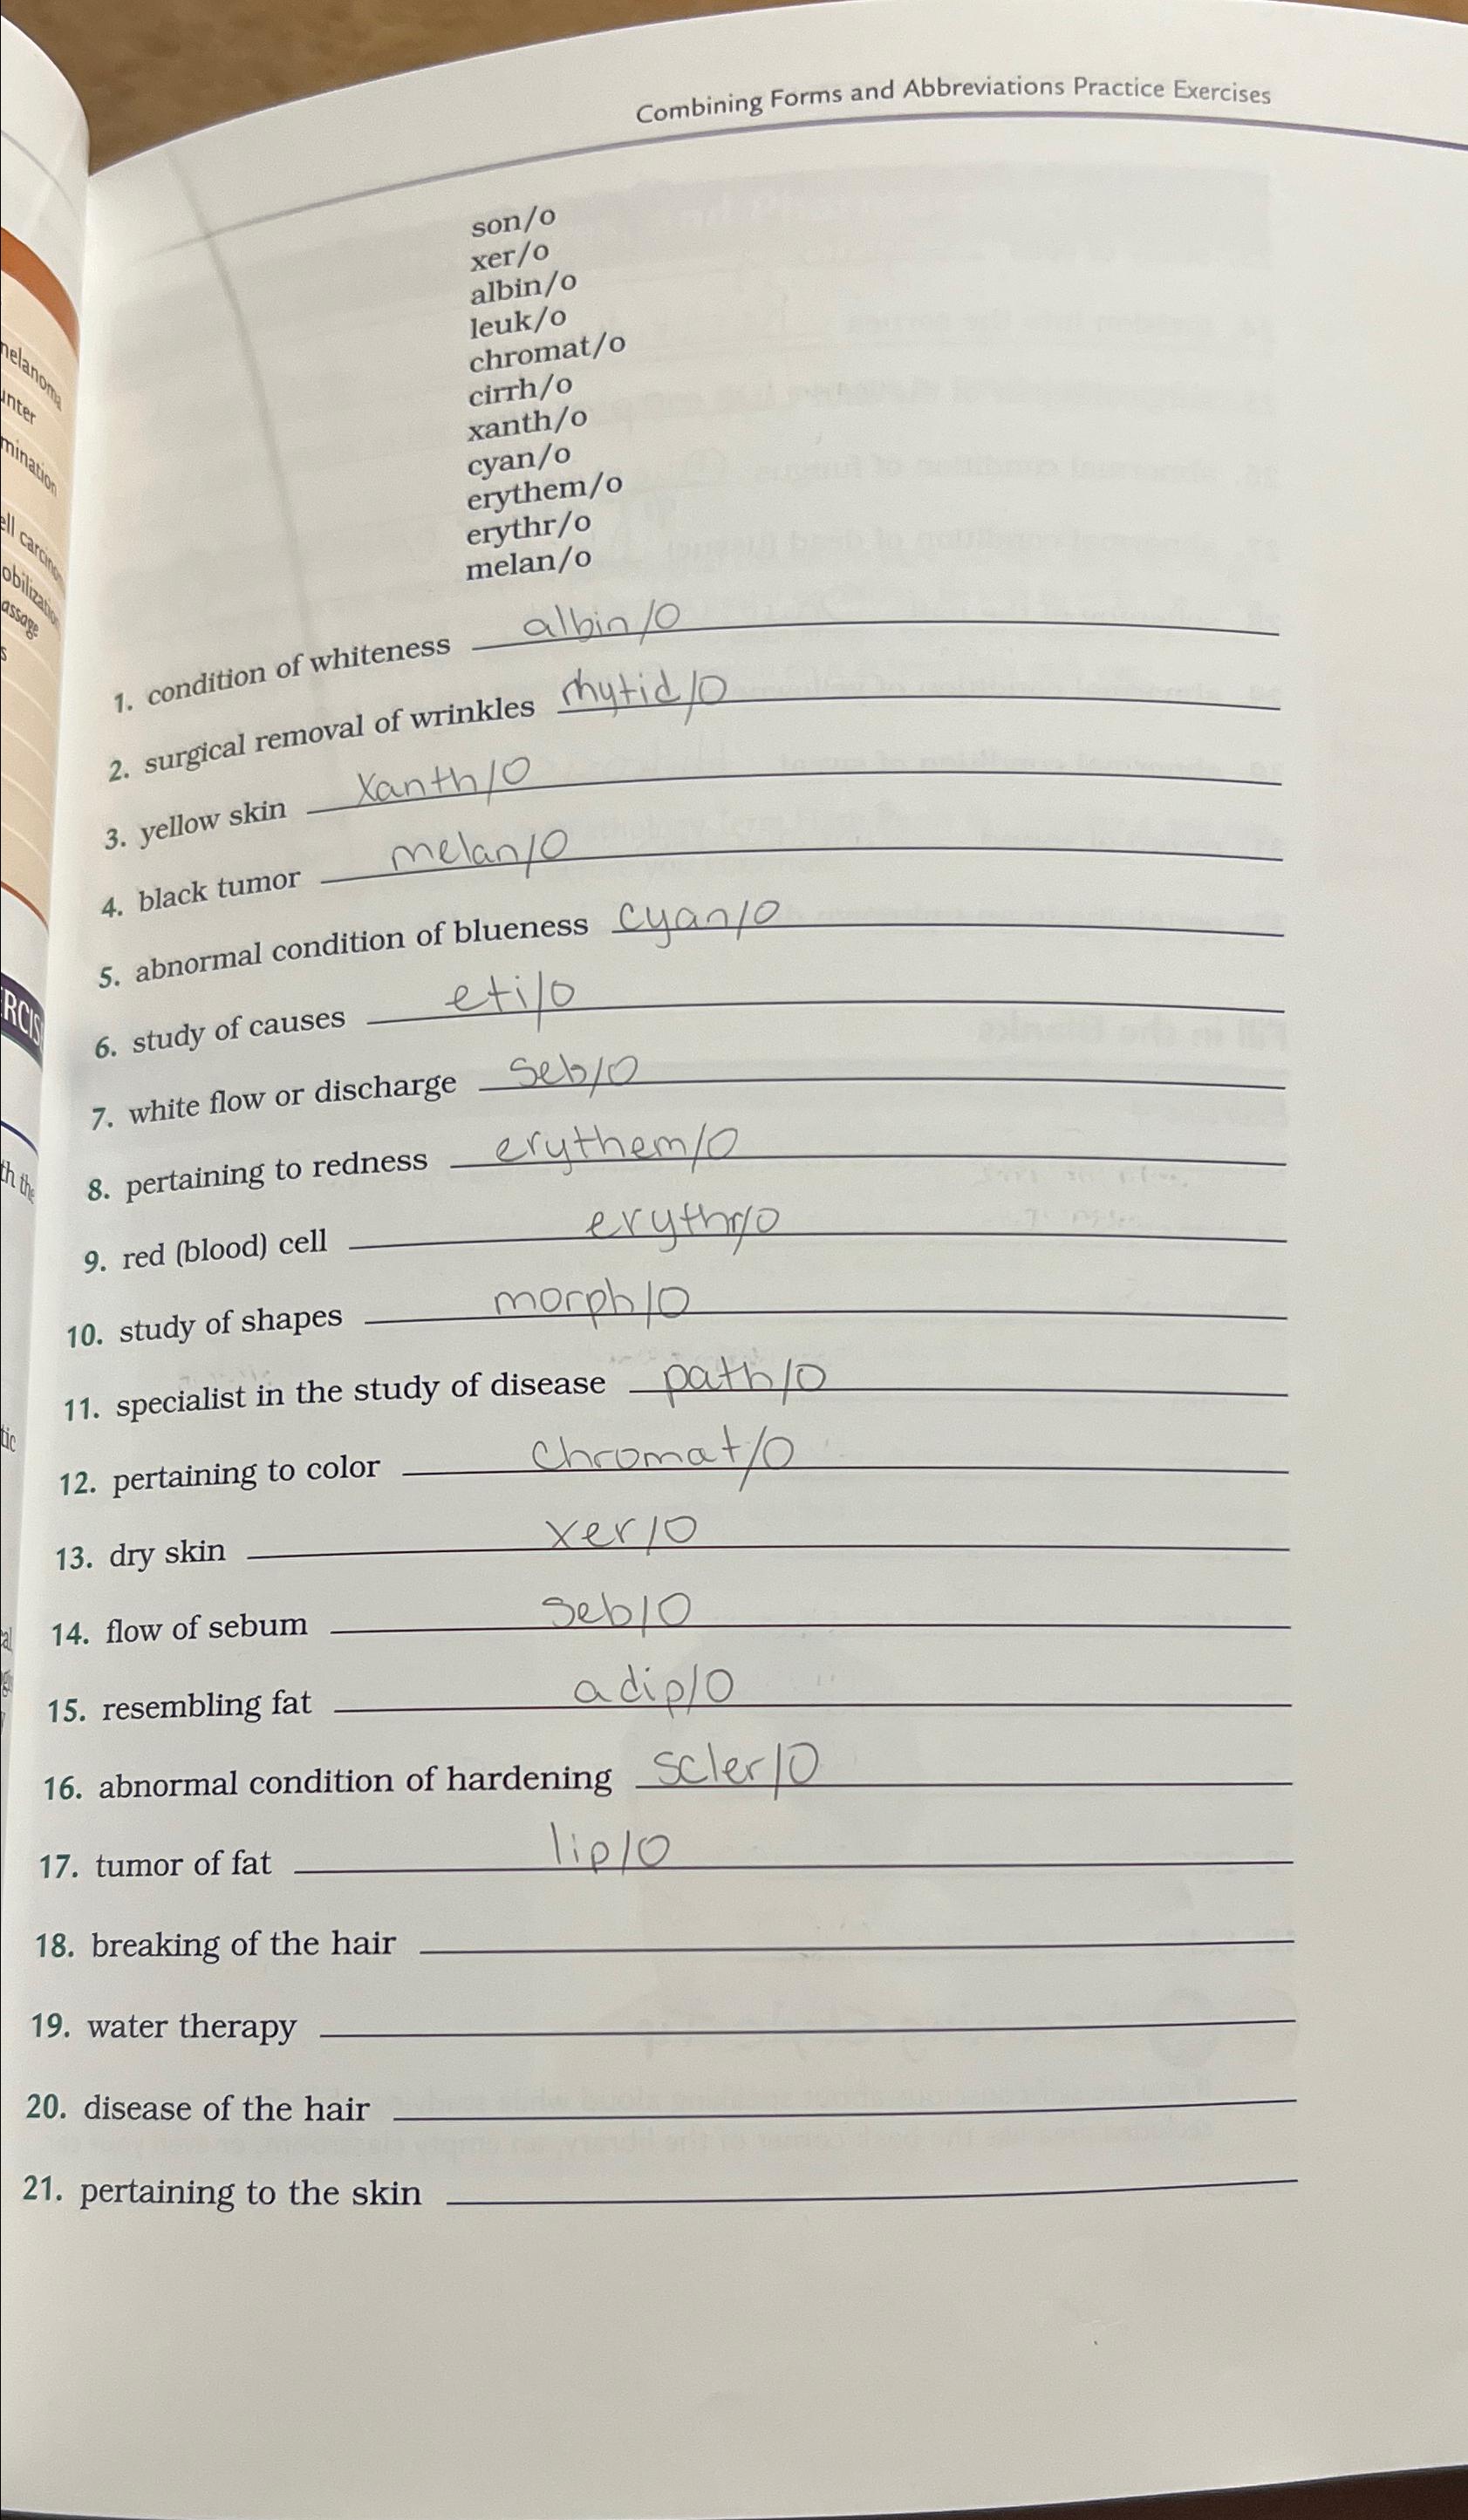 Combining Forms and Abbreviations Practice Exercises
son/o
xer/o
albin/o
leuk/o
chromat/o
cirrh/o
xanth/o
cyan/o
erythem/o
erythr/o
melan/o
1. condition of whiteness albin/o
2. surgical removal of wrinkles rhytid/o
3. yellow skin xanth/o
4. black tumor melan/o
5. abnormal condition of blueness cyan/o
6. study of causes eti/o
7. white flow or discharge seb/o
8. pertaining to redness erythem/o
9. red (blood) cell erythr/o
10. study of shapes morph/o
11. specialist in the study of disease path/o
12. pertaining to color chromat/o
13. dry skin xer/o
14. flow of sebum seb/o
15. resembling fat adip/o
16. abnormal condition of hardening scler/o
17. tumor of fat lip/o
18. breaking of the hair
19. water therapy
20. disease of the hair
21. pertaining to the skin